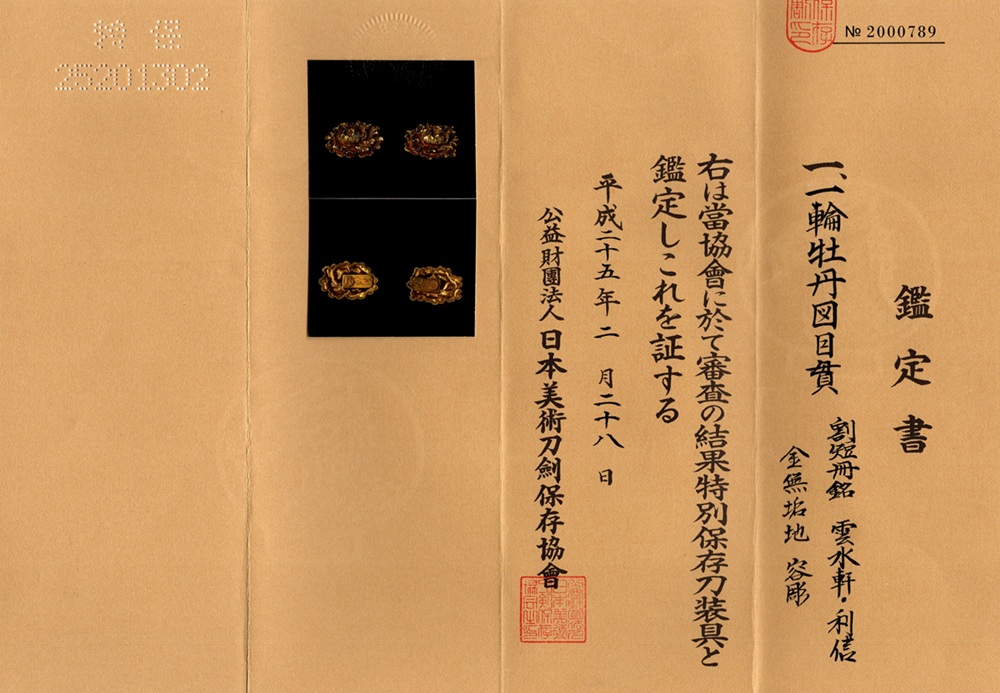 № 2000789
鑑定書
一、一輪牡丹図目貫
割短冊銘 雲水軒・利信
金無垢地 容彫
右は當協會に於て審査の結果特別保存刀装具と
鑑定しこれを証する
平成二十五年二月二十八日
公益財團法人日本美術刀劍保存協會
特保
25201302